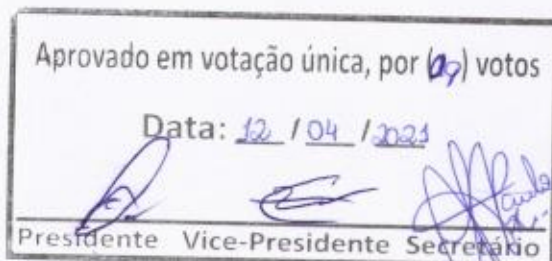 Aprovado em votação única, por (09) votos
Data: 12 / 04 / 2021
Presidente Vice-Presidente Secretário